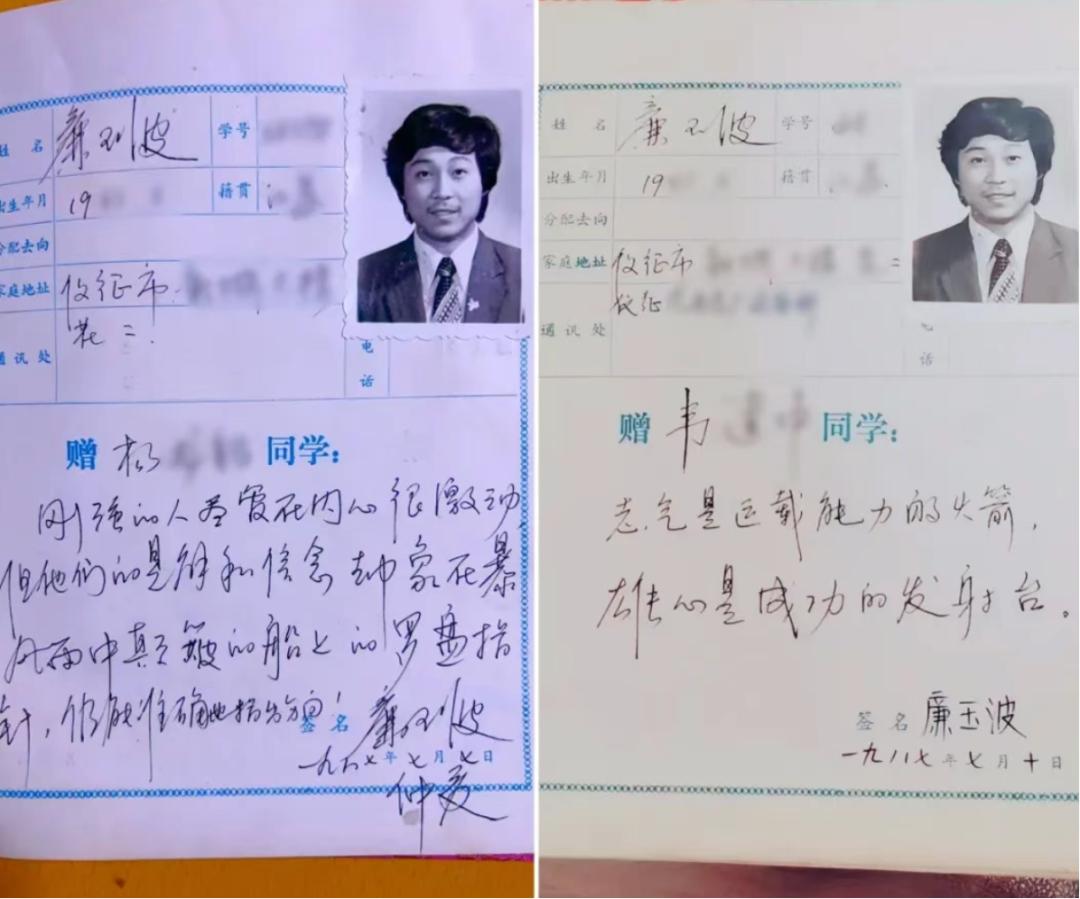 姓 名 廉玉波 学号
出生年月 19 籍贯 江
分配去向
家庭地址 仪征市
花二.
通讯处 电话
赠 杨 同学：
刚强的人尽管在内心很激动，
但他们的见解和信念却象在暴
风雨中颠簸的船上的罗盘指
针，仍能准确地指出方向！
签名 廉玉波
一九八七年七月七日
仲夏
姓 名 廉玉波 学号
出生年月 19 籍贯
分配去向
家庭地址 仪征市
仪征
通讯处 电话
赠 韦 同学：
志气是运载能力的火箭，
雄心是成功的发射台。
签名 廉玉波
一九八七年七月十日